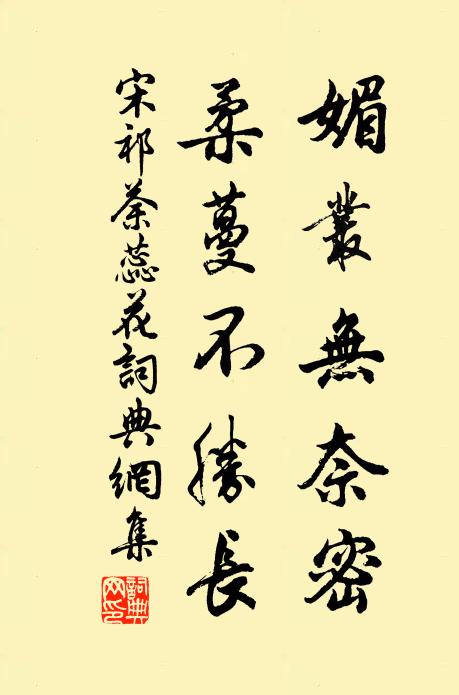 媚叢無奈密
柔蔓不勝長
宋祁荼蕊花詞典網集
詞典网印